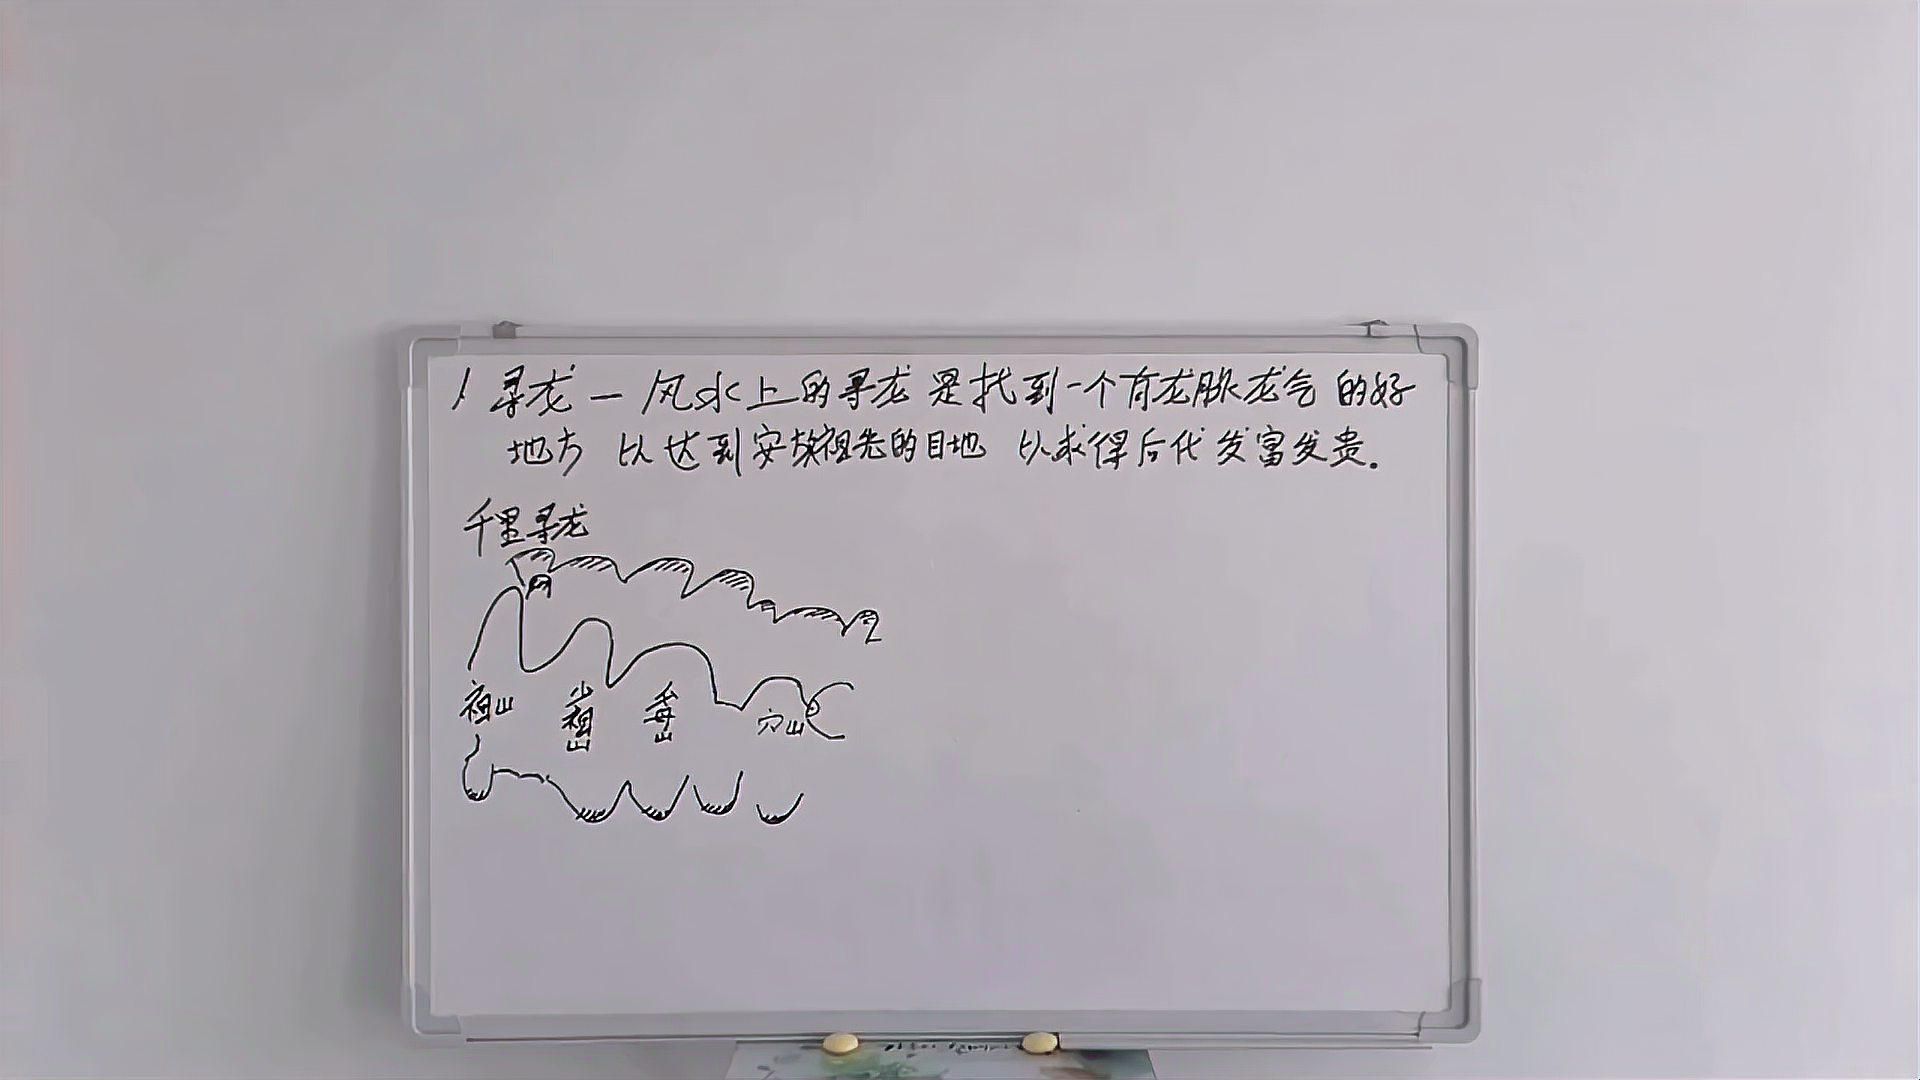 1 寻龙 — 风水上的寻龙 是找到一个有龙脉龙气 的好
地方 以达到安放祖先的目地 以求得后代 发富发贵.
千里寻龙
祖山 少祖山 父母山 穴山